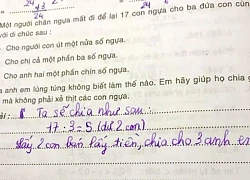 24 43 24
Một người chăn ngựa mất đi để lại 17 con ngựa cho ba đứa con cùng
với di chúc sau :
Cho người con út một nửa số ngựa.
Cho chị cả một phần ba số ngựa.
Cho anh hai một phần chín số ngựa.
a anh em lúng túng không biết làm thế nào. Em hãy giúp họ chia
mà không phải xẻ thịt các con ngựa.
Ta sẽ chia như sau :
17 : 3 = 5 (dư 2 con)
lấy 2 con bán lấy tiền, chia cho 3 anh em